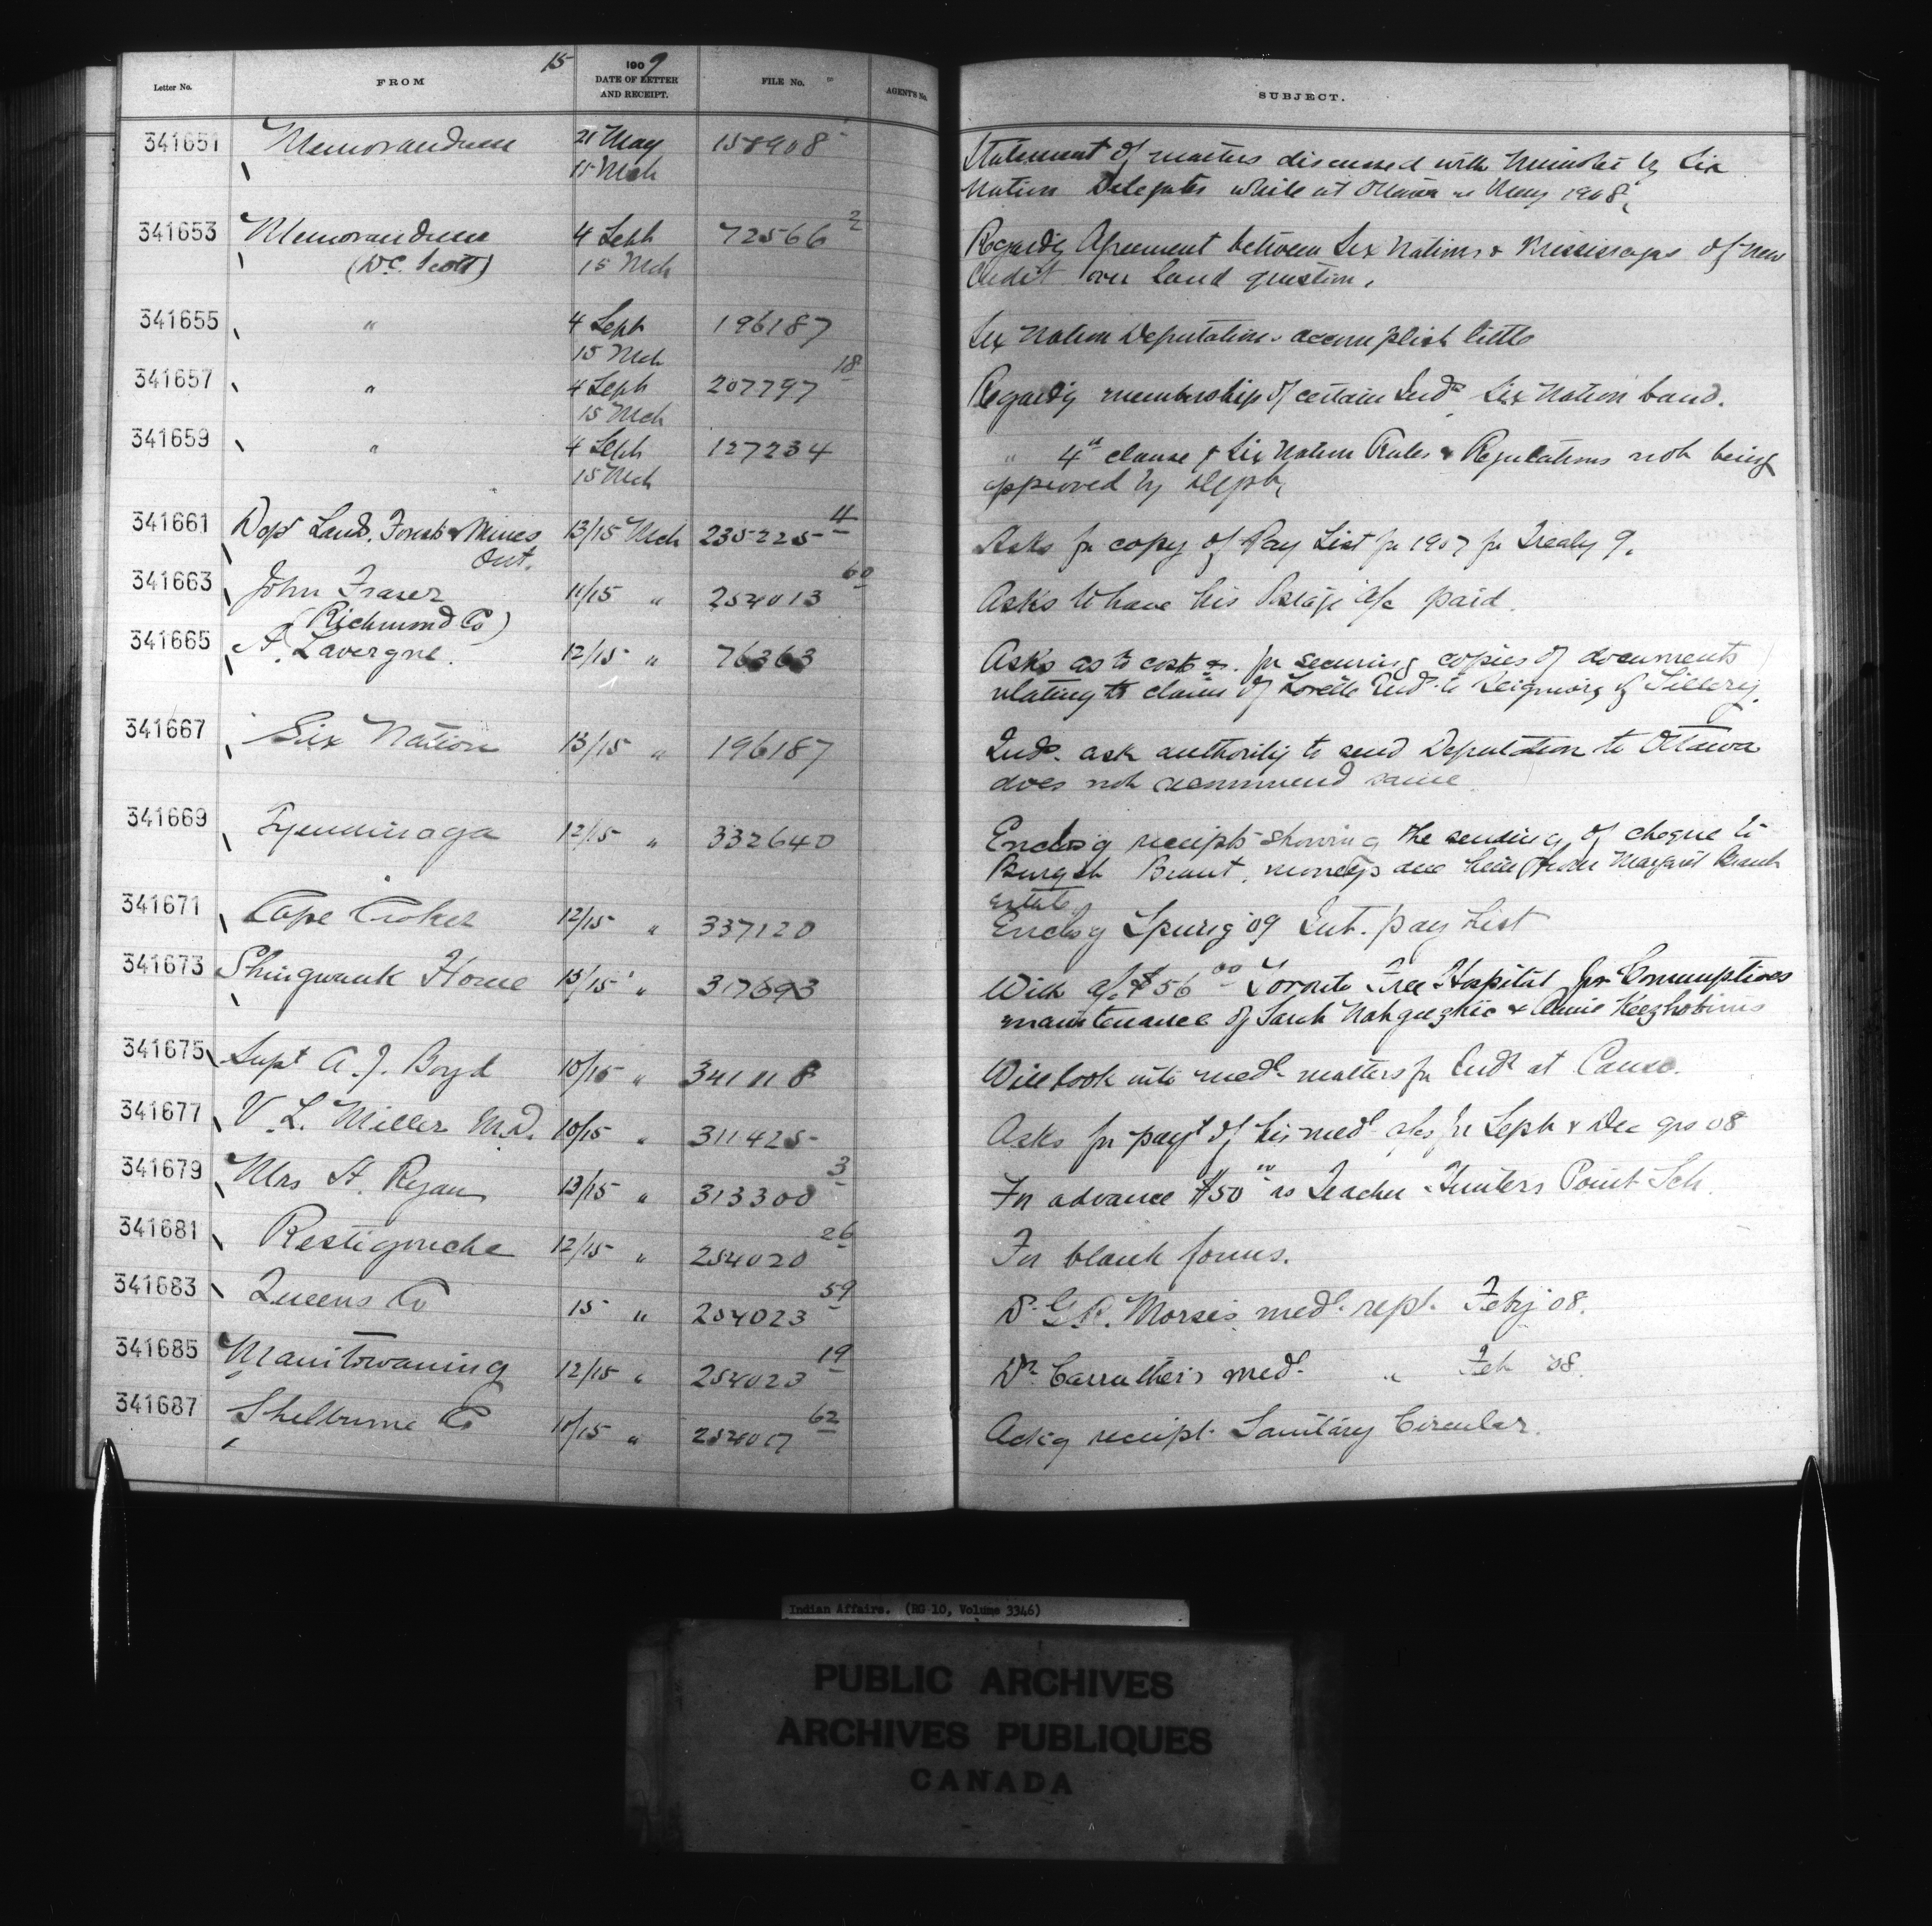 15 1909
Letter No. FROM DATE OF LETTER AND RECEIPT. FILE No. AGENT'S No. SUBJECT.
341651 Memorandum 21 May 158908 Statement of matters discussed with Minister by Six
15 Mch Nation Delegates while at Ottawa in May 1908.
341653 Memorandum 4 Sept 72566 2 Regardg Agreement between Six Nations & Mississagas of New
(D.C. Scott) 15 Mch Credit over land question.
341655 " 4 Sept 196187 Six Nation Deputations accomplish little
15 Mch
341657 " 4 Sept 207797 18 Regardg membership of certain Inds Six Nation band.
15 Mch
341659 " 4 Sept 127234 " 4th clause of Six Nation Rules & Regulations not being
15 Mch approved by Dept.
341661 Dept Land. Forest & Mines 13/15 Mch 235225 4 Asks for copy of Pay List for 1907 for Treaty 9.
Ont.
341663 John Fraser 11/15 " 254013 60 Asks to have his Postage a/c paid.
(Richmond Co)
341665 A. Lavergne. 12/15 " 76363 Asks as to cost &. for securing copies of documents
relating to claim of Lorette Inds. to Seigniory of Sillery.
341667 Six Nation 13/15 " 196187 Inds. ask authority to send Deputation to Ottawa
does not recommend same
341669 Tyendinaga 12/15 " 332640 Enclosg receipts showing the sending of cheque to
Burgsh Brant, moneys due him from Margaret Brant
estate.
341671 Cape Croker 12/15 " 337120 Enclosg Spring '09 Int. pay List
341673 Shingwauk Home 15/15 " 317693 With a/c $56 00 Toronto Free Hospital for Consumptives
maintenance of Sarah Nahgueghic & Annie
341675 Supt A. J. Boyd 10/15 " 341118 Will look into medl matters for Inds at Canso.
341677 V. L. Miller M.D. 10/15 " 311425 Asks for payt of his medl a/cs for Sept & Dec qrs 08
341679 Mrs A. Ryan 13/15 " 313300 3 For advance $50 00 as Teacher Hunters Point Sch.
341681 Restigouche 12/15 " 254020 26 For blank forms.
341683 Queens Co 15 " 254023 59 Dr. G.R. Morse's medl. rept. Feby '08.
341685 Manitowaning 12/15 " 254023 19 Dr. Carruther's med. " Feb '08.
341687 Shelburne Co 11/15 " 254017 62 Ackg receipt Sanitary Circular.
Indian Affairs. (RG 10, Volume 3346)
PUBLIC ARCHIVES
ARCHIVES PUBLIQUES
CANADA